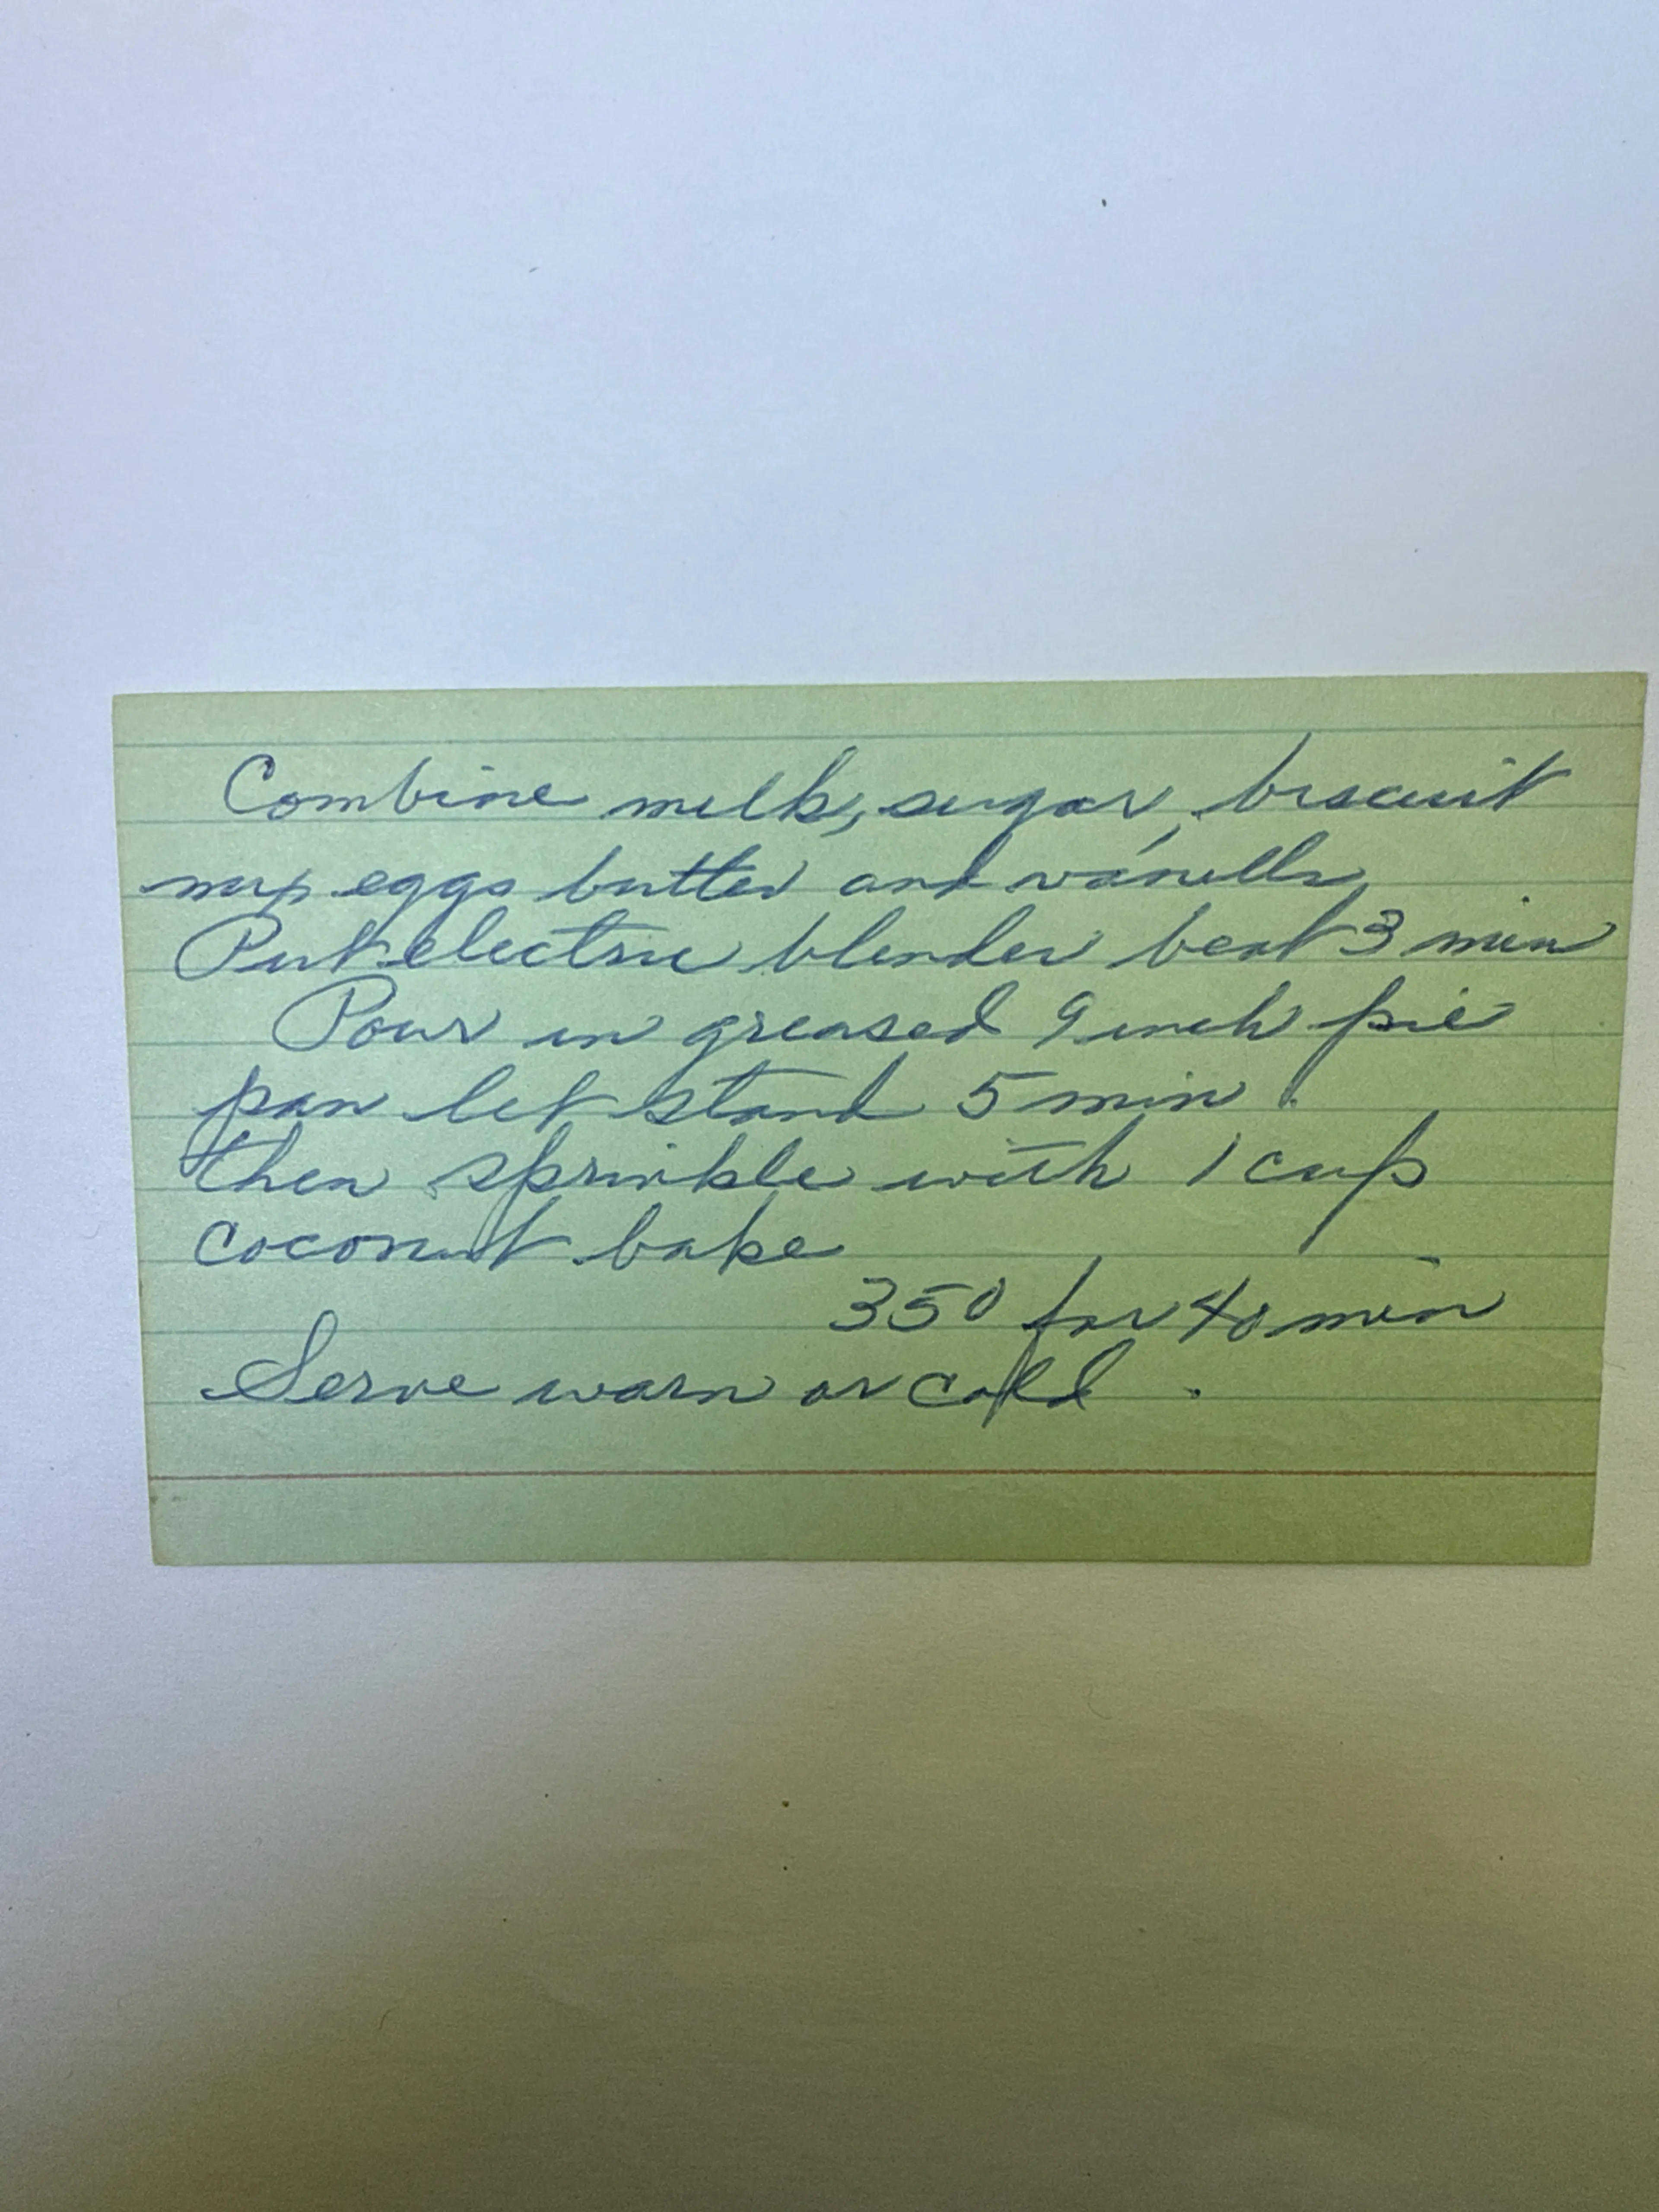 Combine milk, sugar, biscuit
mix eggs butter and vanilla
Put electric blender beat 3 min
Pour in greased 9 inch pie
pan let stand 5 min.
then sprinkle with 1 cup
coconut bake
350 for 40 min
Serve warm or cold.